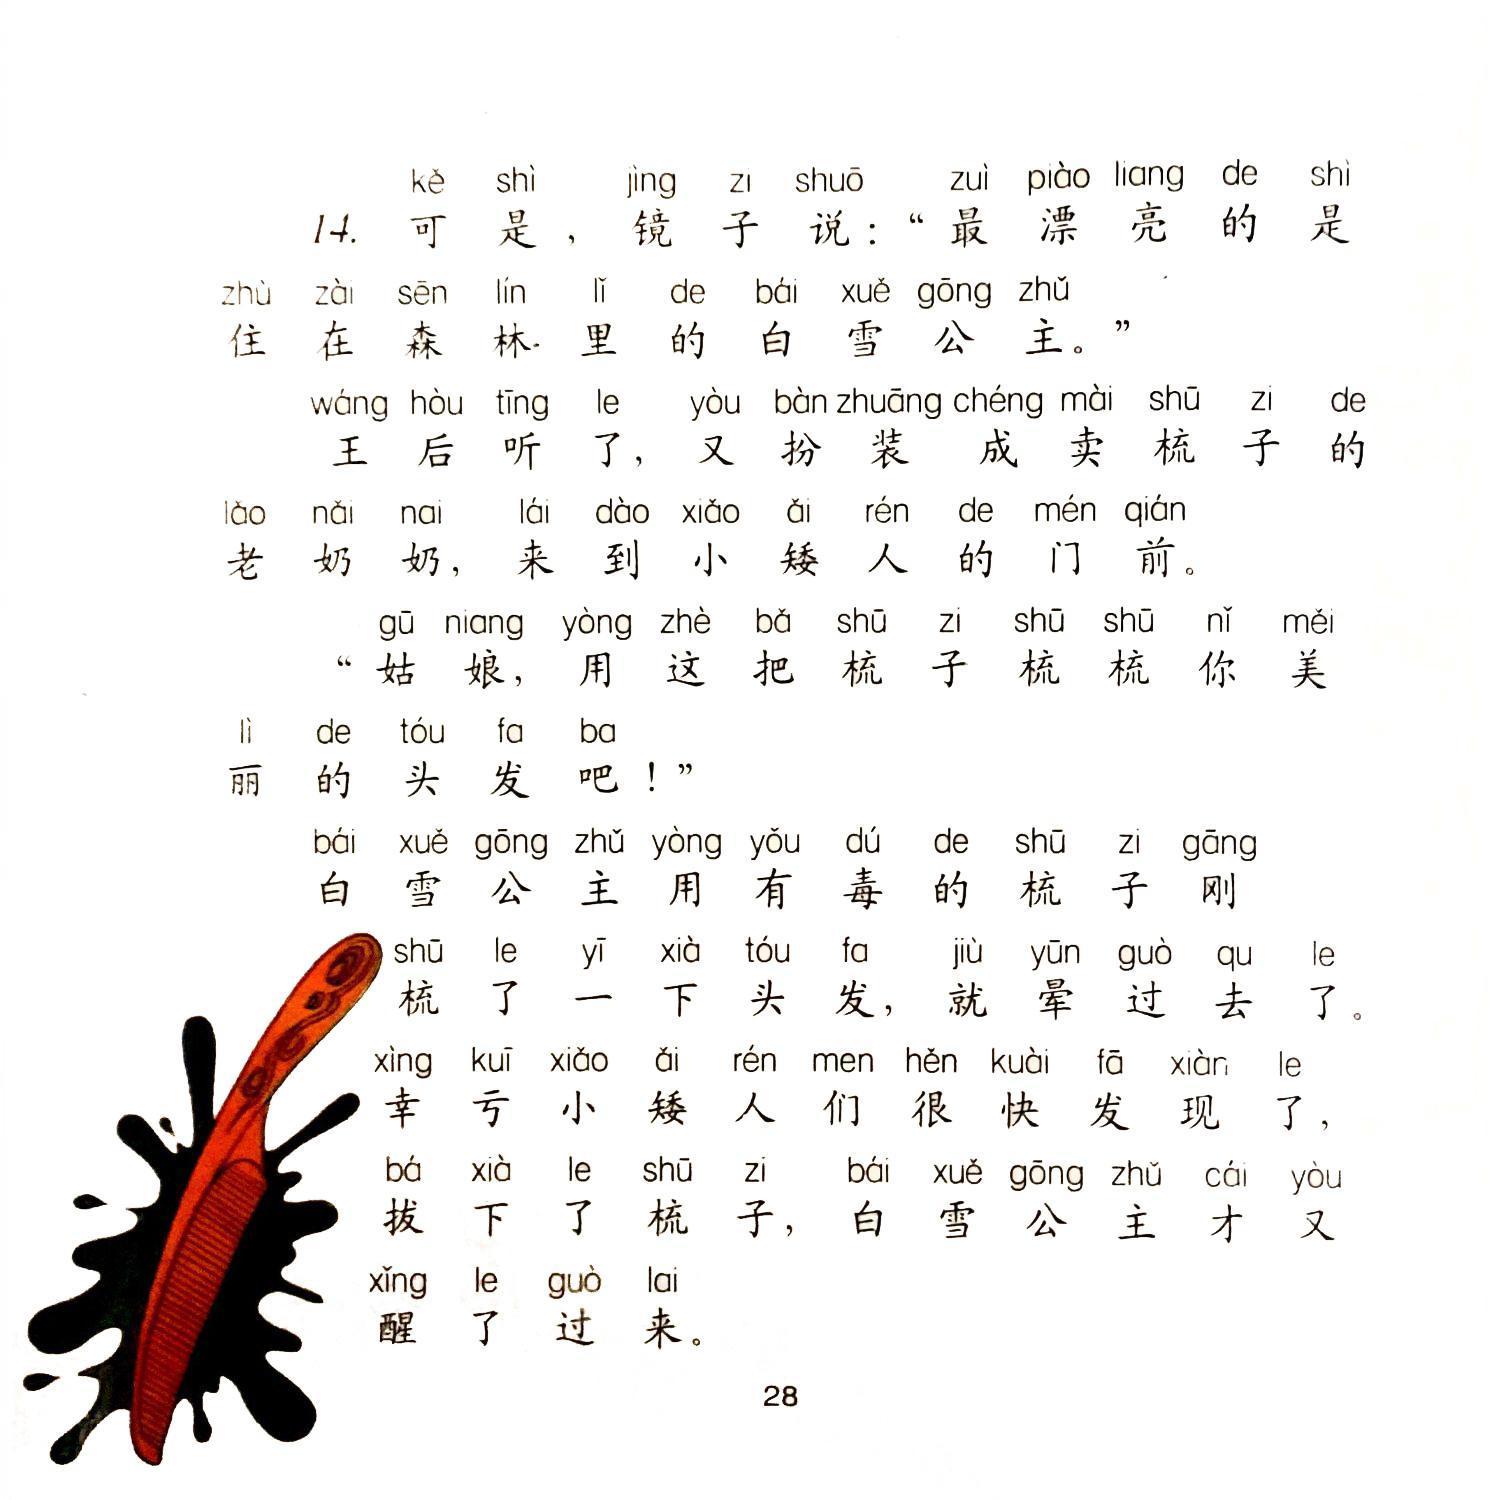 kě shì jìng zi shuō zuì piào liang de shì
14. 可是，镜子说：“最漂亮的是
zhù zài sēn lín lǐ de bái xuě gōng zhǔ
住在森林里的白雪公主。”
wáng hòu tīng le yòu bàn zhuāng chéng mài shū zi de
王后听了，又扮装成卖梳子的
lǎo nǎi nai lái dào xiǎo ǎi rén de mén qián
老奶奶，来到小矮人的门前。
gū niang yòng zhè bǎ shū zi shū shū nǐ měi
“姑娘，用这把梳子梳梳你美
lì de tóu fa ba
丽的头发吧！”
bái xuě gōng zhǔ yòng yǒu dú de shū zi gāng
白雪公主用有毒的梳子刚
shū le yī xià tóu fa jiù yūn guò qu le
梳了一下头发，就晕过去了。
xìng kuī xiǎo ǎi rén men hěn kuài fā xiàn le
幸亏小矮人们很快发现了，
bá xià le shū zi bái xuě gōng zhǔ cái yòu
拔下了梳子，白雪公主才又
xǐng le guò lai
醒了过来。
28